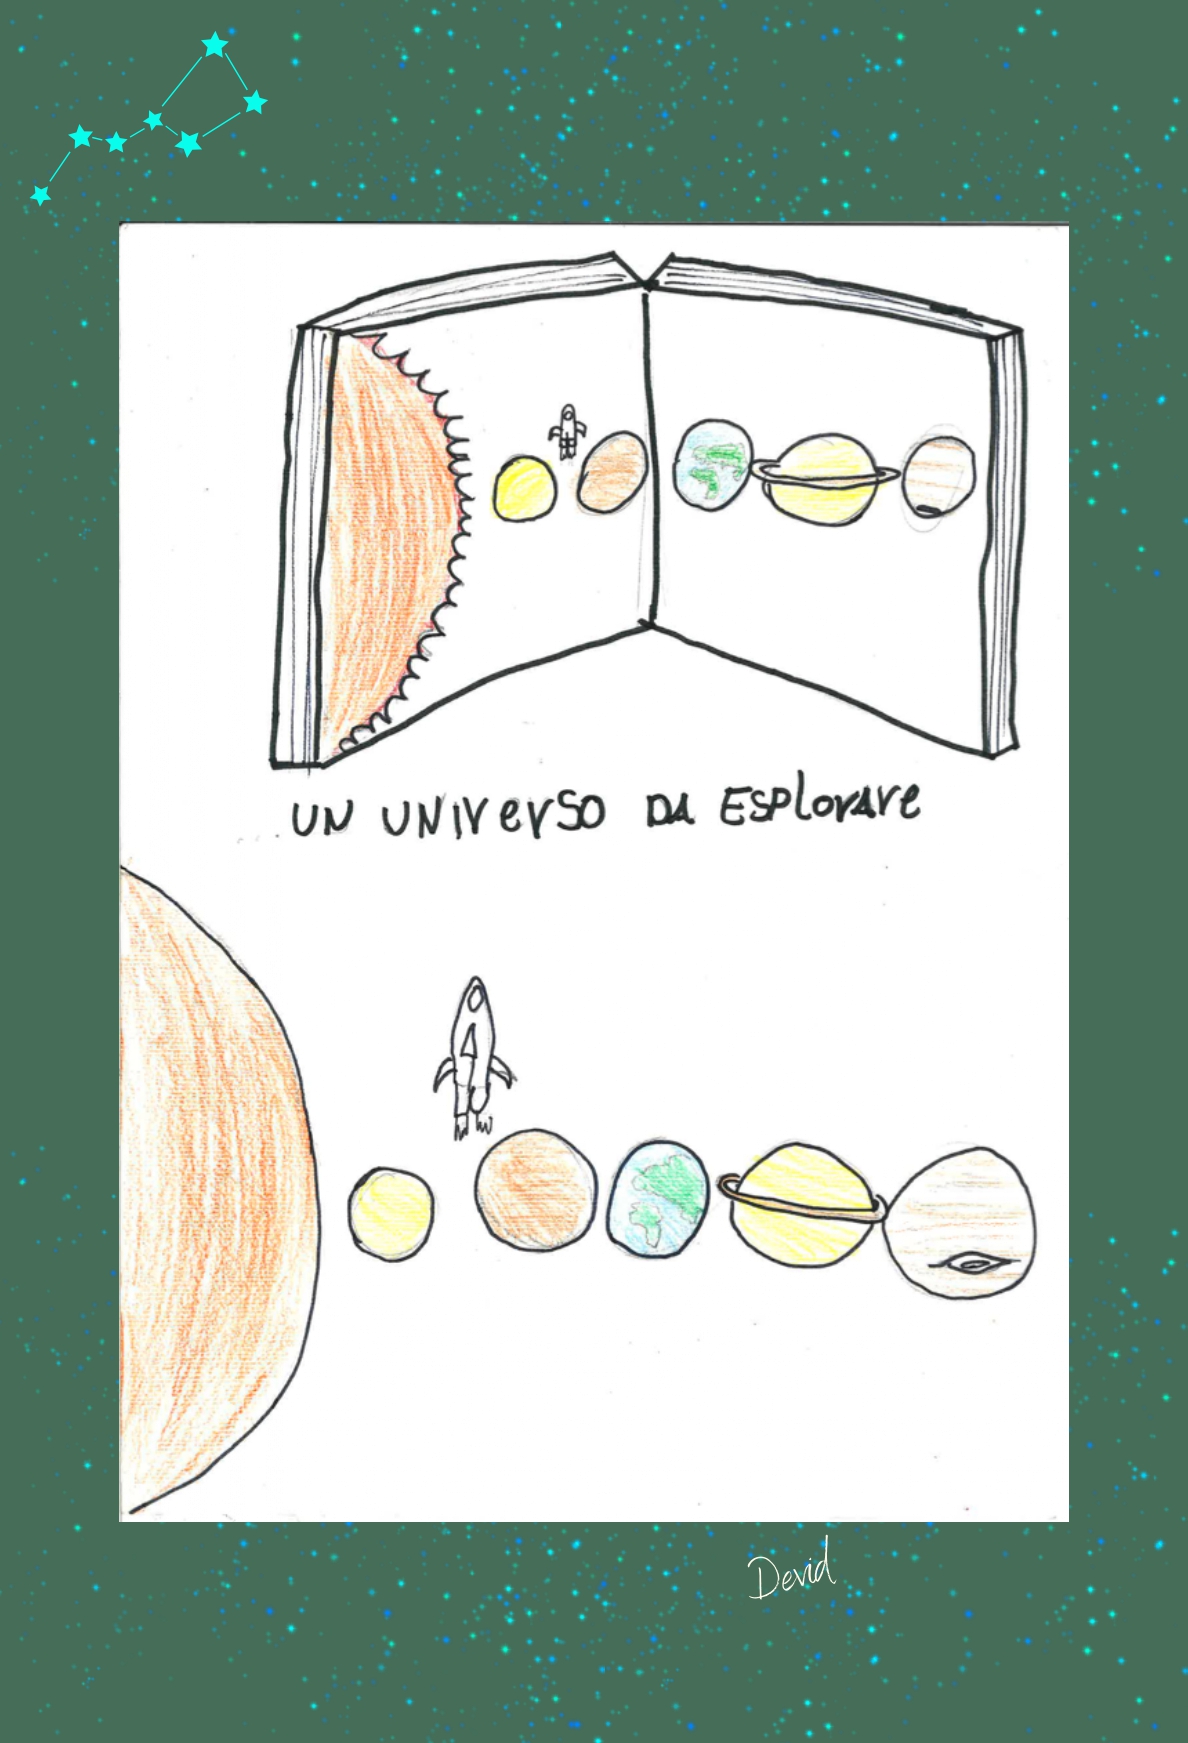 UN UNIVERSO DA ESPLORARE
Devid